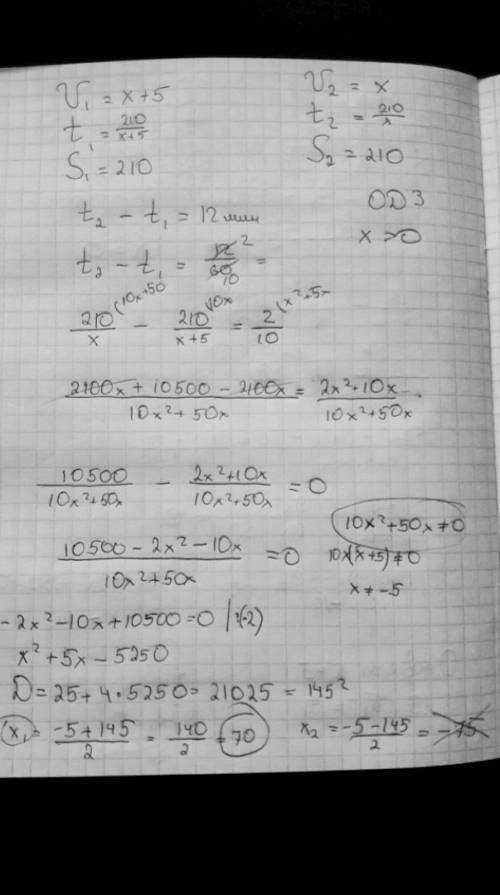 V₁ = x+5
t₁ = 210/(x+5)
S₁ = 210
V₂ = x
t₂ = 210/x
S₂ = 210
ОДЗ
x > 0
t₂ − t₁ = 12 мин
t₂ − t₁ = 12/60 2/10 =
210/x (10x+50 − 210/(x+5) (10x = 2/10 (x²+5x
(2100x + 10500 − 2100x)/(10x² + 50x) = (2x² + 10x)/(10x² + 50x)
10500/(10x²+50x) − (2x²+10x)/(10x²+50x) = 0
(10500 − 2x² − 10x)/(10x² + 50x) = 0
10x² + 50x ≠ 0
10x(x+5) ≠ 0
x ≠ −5
−2x² − 10x + 10500 = 0 |:(-2)
x² + 5x − 5250
D = 25 + 4·5250 = 21025 = 145²
x₁ = (−5+145)/2 = 140/2 = 70
x₂ = (−5−145)/2 = −75